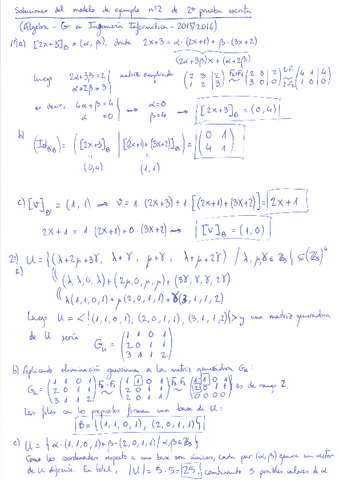 Soluciones del modelo de ejemplo nº2 de 2ª prueba escrita
(Álgebra - G. en Ingeniería Informática - 2015/2016)
1º) a) [2x+3]_B = (α, β), donde 2x+3 = α·(2x+1) + β·(3x+2)
(2α+3β)x + (α+2β)
Luego 2α+3β=2
α+2β=3
matriz ampliada
(2 3 | 2
1 2 | 3)
es decir,
α=0
β=4
→ [2x+3]_B = (0,4)
b)
(0 1
4 1)
(0,4) (1,1)
c) [v]_B' = (1,1) → v = 1·(2x+3) + 1·[(2x+1)+(3x+2)] = 2x+1
2x+1 = 1·(2x+1) + 0·(3x+2) → [v]_B = (1,0)
2º)
a) U = {(λ+2μ+3γ, λ+γ, μ+γ, λ+μ+2γ) / λ, μ, γ ∈ Z₅} ⊆ (Z₅)⁴
(λ,λ,0,λ) + (2μ,0,μ,μ) + (3γ,γ,γ,2γ)
λ(1,1,0,1) + μ(2,0,1,1) + γ(3,1,1,2)
Luego U = <{(1,1,0,1), (2,0,1,1), (3,1,1,2)}> y una matriz generadora
de U sería
G_U = (1 1 0 1
2 0 1 1
3 1 1 2)
b) Aplicando eliminación gaussiana a la matriz generadora G_U:
es de rango 2.
Las filas con los pivotes forman una base de U:
B = {(1,1,0,1), (2,0,1,1)}
c) U = {α·(1,1,0,1) + β·(2,0,1,1) / α, β ∈ Z₅}
Como las coordenadas respecto a una base son únicas, cada par (α,β) genera un vector
de U diferente. En total, |U| = 5·5 = 25, combinando 5 posibles valores de α